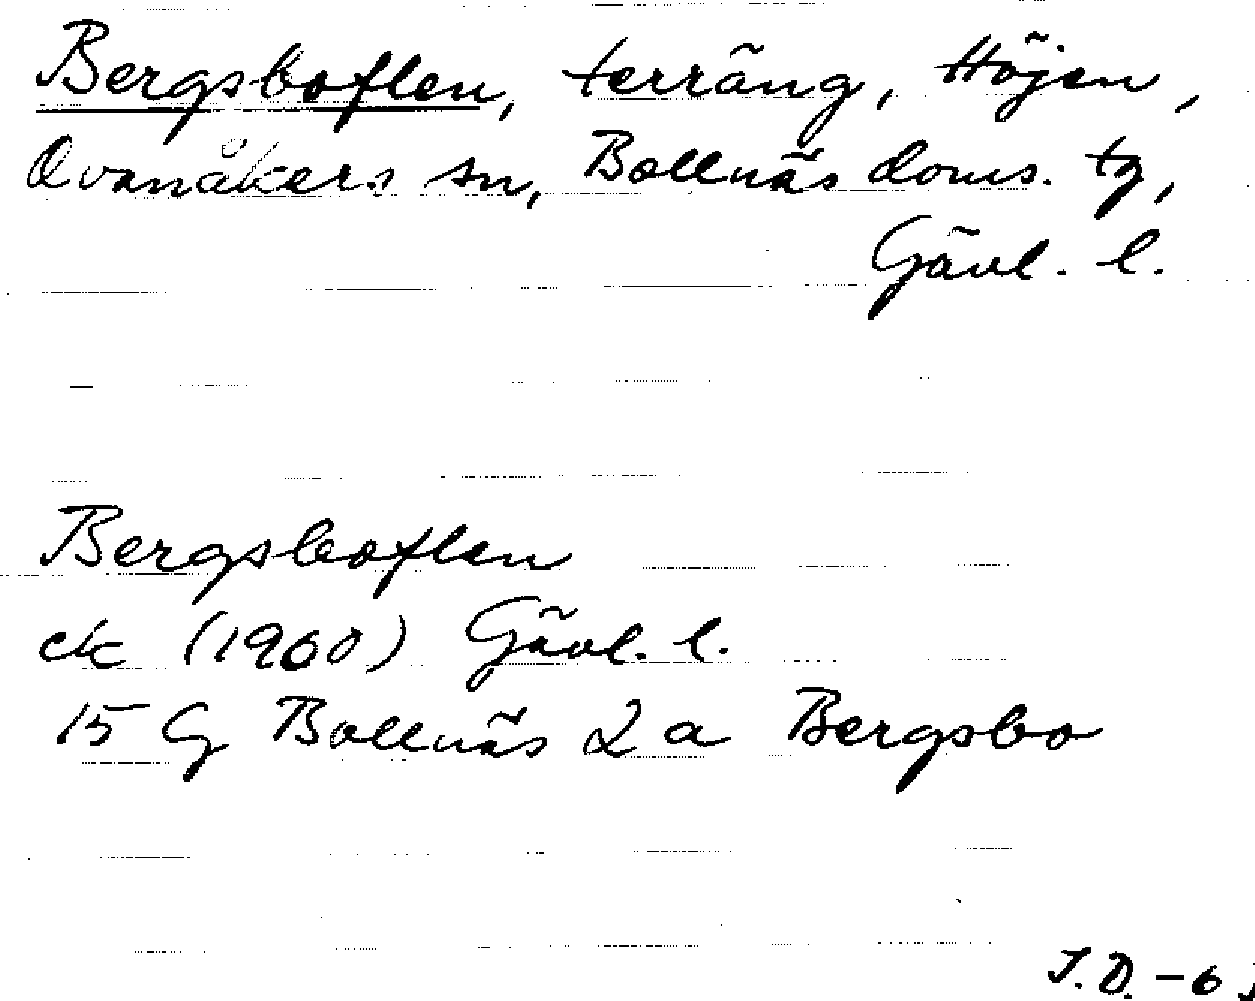 Bergsboflen, terräng, Höjen,
Ovanåkers sn, Bollnäs doms. tg,
Gävl. l.
Bergsboflen
ek (1960) Gävl. l.
15 G Bollnäs 2 a Bergsbo
J.D. -6